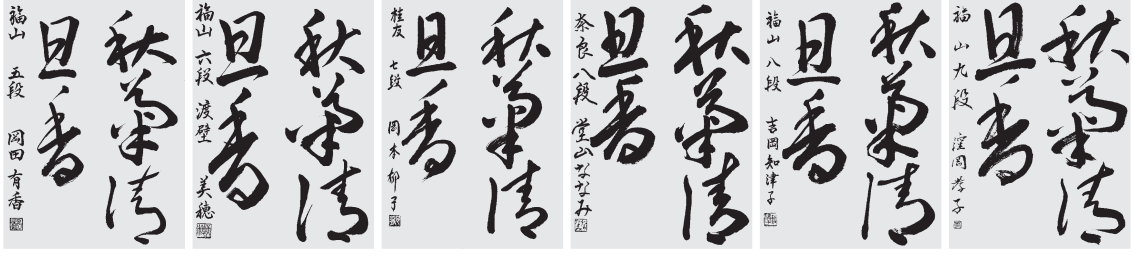 秋菊清
且香
福山 九段 窪岡孝子
秋菊清
且香
福山 八段 吉岡知津子
秋菊清
且香
奈良 八段 堂山ななみ
秋菊清
且香
桂友 七段 岡本郁子
秋菊清
且香
福山 六段 渡壁美穂
秋菊清
且香
福山 五段 岡田有香